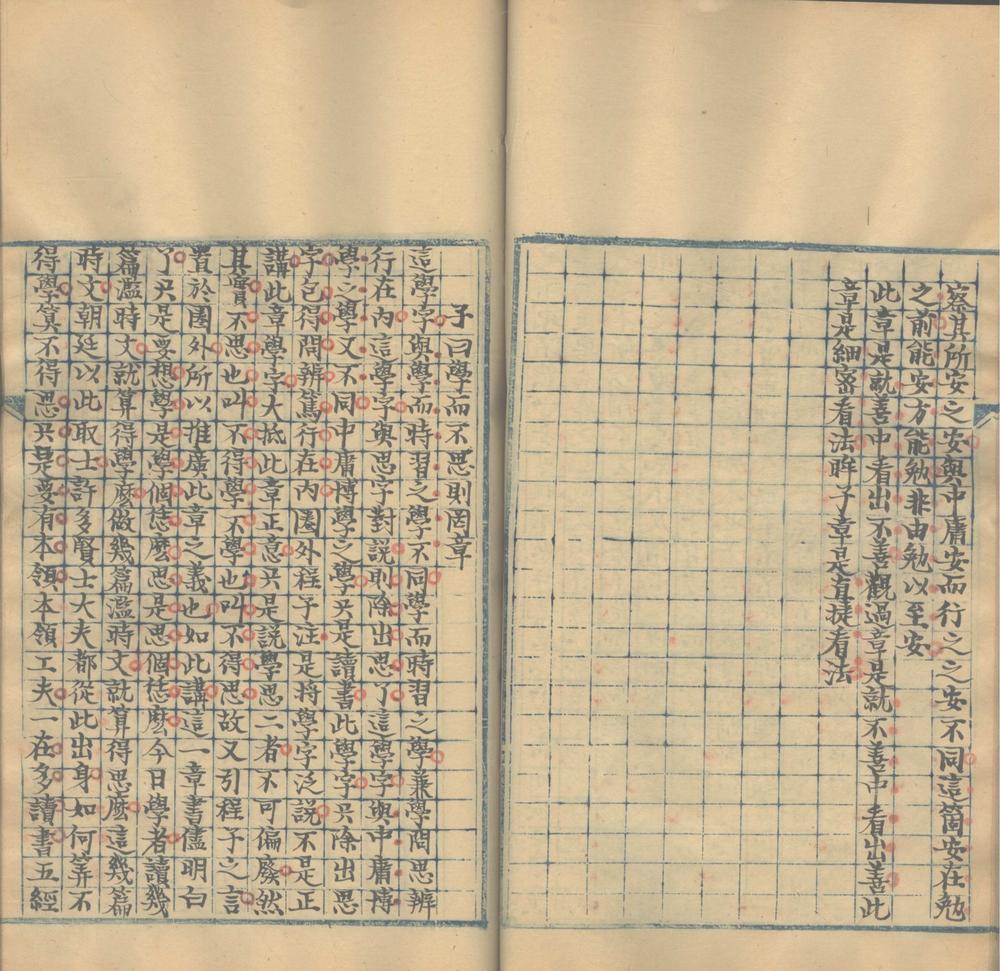 察其所安之安與中庸安而行之之安不同這箇安在勉
之前能安方能勉非由勉以至安
此章是就善中看出不善觀過章是就不善中看出善此
章是細宻看法眸子章是直捷看法
子曰學而不思則罔章
這學字與學而時習之學不同學而時習之學兼學問思辨
行在內這學字與思字對說則除出思了這學字與中庸博
學之學又不同中庸博學之學只是讀書此學字只除出思
字包得問辨篤行在內圏外程子注是將學字泛說不是正
講此章學字大抵此章正意只是說學思二者不可偏廢然
其實不思也叫不得學不學也叫不得思故又引程子之言
置於圏外所以推廣此章之義也如此講這一章書儘明白
了只是要想學是學個恁麽思是思個恁麽今日學者讀幾
篇濫時文就算得學麽做幾篇濫時文就算得思麽這幾篇
時文朝廷以此取士許多賢士大夫都從此出身如何筭不
得學筭不得思只是要有本領本領工夫一在多讀書五經